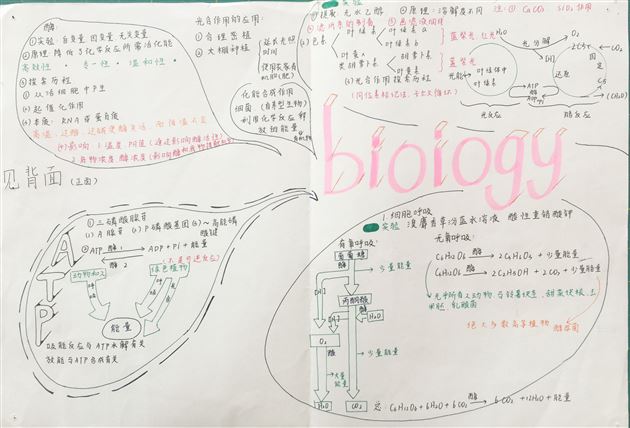 酶:
①实验: 自变量 因变量 无关变量
②原理: 降低了化学反应所需活化能
高效性 · 专一性 · 温和性 ·
③探索历程:
(1) 从活细胞中产生
(2) 起催化作用
(3) 本质: RNA 或蛋白质
(4) 影响 1 温度 PH值
光合作用的应用:
① 合理密植
② 大棚种植
延长光照
时间
使用农家肥
化能合成作用
细菌 (自养型生物)
利用化学反应释
放的能量
实验
①提取 无水乙醇
②原理: 溶解度不同
注: ① CaCO₃ SiO₂ 作用
② 色素
叶绿素
叶绿素 a
叶绿素 b
蓝紫光, 红光
类胡萝卜素
胡萝卜素
叶黄素
蓝紫光
(2) 光合作用探索历程
(同位素标记法, 卡尔文循环)
H₂O
O₂
水光解
[H]
2C₃
CO₂
光能
叶绿体中
叶绿素
还原
C₅
ATP
酶
酶
光反应
暗反应
bioiogy
见背面 (正面)
ATP
① 三磷酸腺苷
(1) A 腺苷 (2) P 磷酸基团 (3) ~ 高能磷
酸键
② ATP 酶1 ADP + Pi + 能量
酶2
(不是可逆反应)
动物和人
绿色植物
呼
吸
呼
吸
光
合
能量
吸能反应与ATP水解有关
放能与ATP合成有关
1. 细胞呼吸
实验 溴麝香草酚蓝水溶液 酸性重铬酸钾
有氧呼吸:
葡萄糖
酶
少量能量
[H]
丙酮酸
[H]
酶
H₂O
O₂
少量能量
酶
大量
能量
H₂O
CO₂
无氧呼吸:
C₆H₁₂O₆ 酶 2C₃H₆O₃ + 少量能量
C₆H₁₂O₆ 酶 2C₂H₅OH + 2CO₂ + 少量能量
乳酸菌
绝大多数高等植物 酵母菌
总 C₆H₁₂O₆ + 6H₂O + 6O₂ 酶 6CO₂ + 12H₂O + 能量